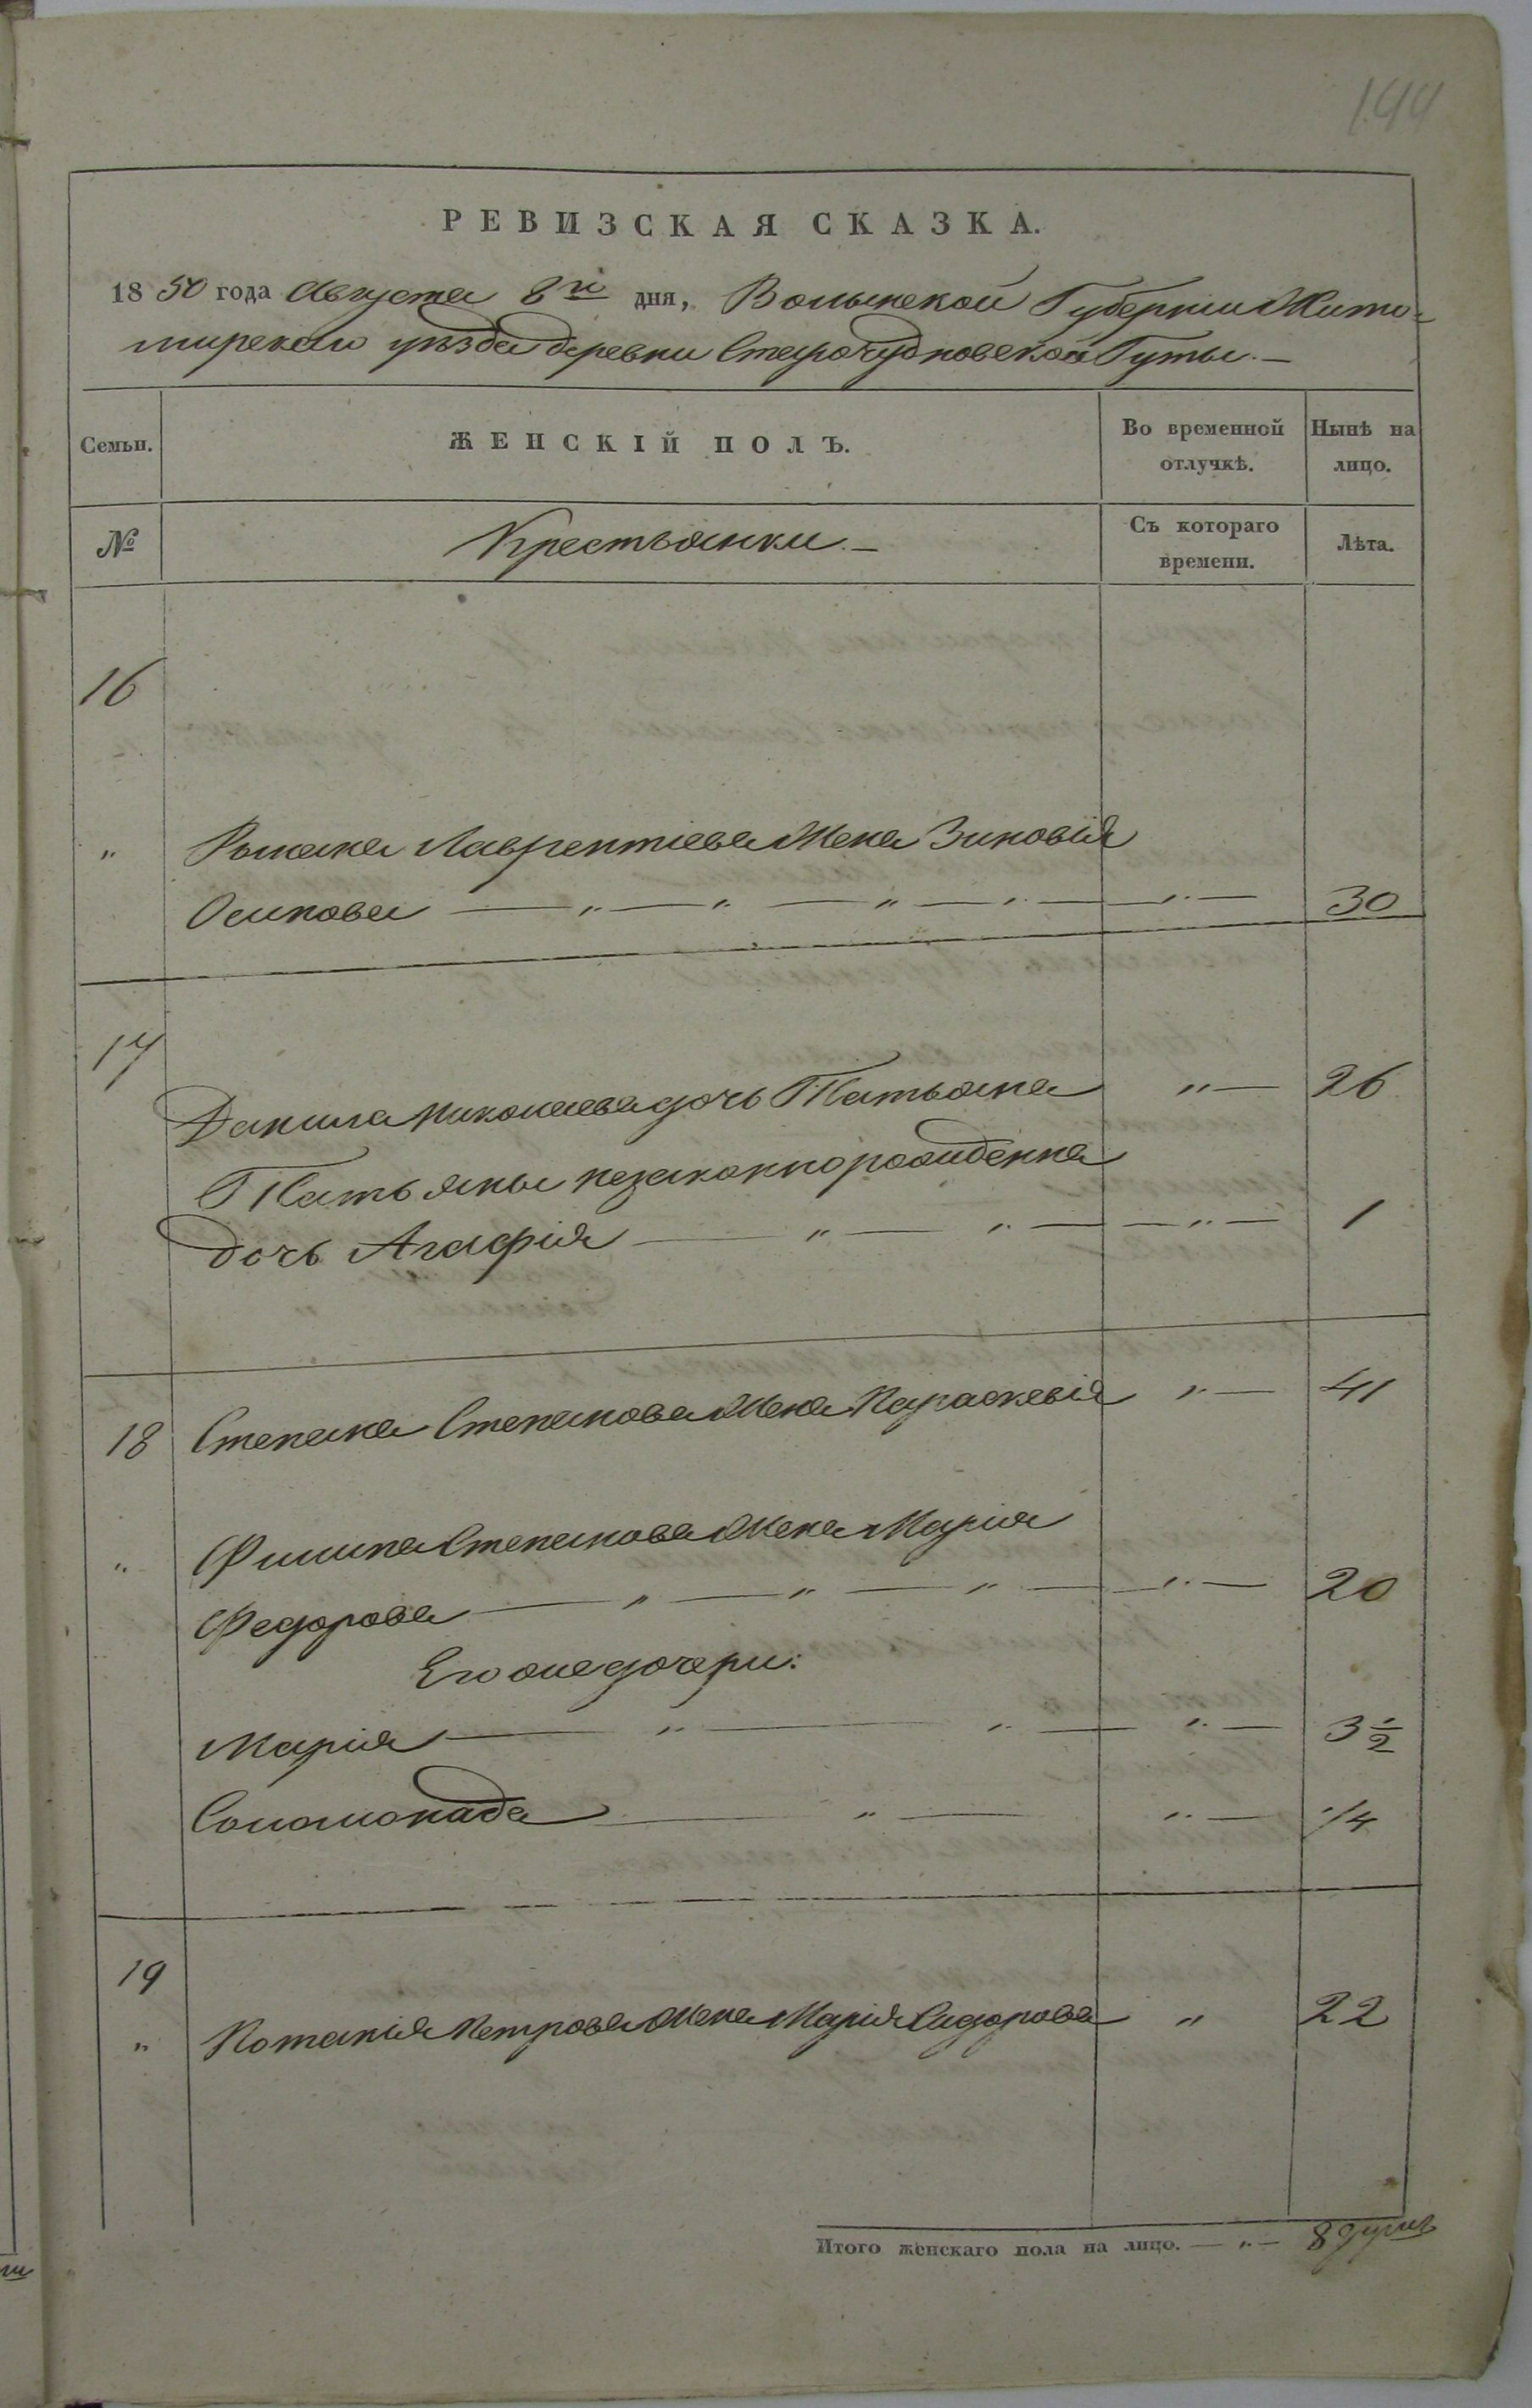 144
РЕВИЗСКАЯ СКАЗКА.
1850 года Августа 8го дня, Волынской Губернии Жито-
мирскаго уѣзда деревни Старочудновской Гуты.—
Семьи. ЖЕНСКІЙ ПОЛЪ. Во временной отлучкѣ. Нынѣ на лицо.
№ Крестьянки.— Съ котораго времени. Лѣта.
16
" Романа Лаврентіева Жена Зиновія
Осипова — " — " — " — " — " — 30
17
Данила Николаева дочь Татьяна " — 26
Татьяны незаконнорожденна
дочь Агафія — " — " — " — 1
18 Степана Степанова Жена Параскевія " — 41
" Филипа Степанова Жена Марія
Федорова — " — " — " — " — 20
Его же дочери:
Марія — " — " — " — 3 1/2
Соломонида — " — " — 1/4
19
" Потапія Петрова Жена Марія Сидорова " 22
Итого женскаго пола на лицо. — " — 8 душъ